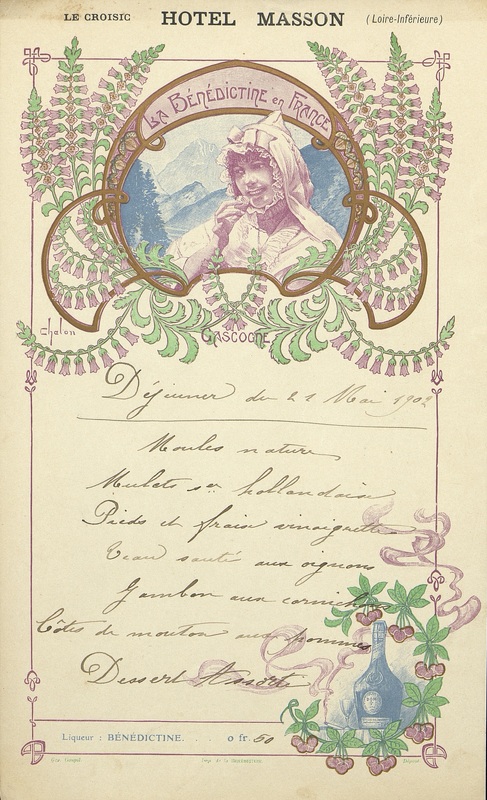 LE CROISIC HOTEL MASSON (Loire-Inférieure)
LA BÉNÉDICTINE en FRANCE
Chalon
GASCOGNE
Déjeuner du 21 Mai 1902
Moules nature
Mulets sce hollandaise
Pieds et fraise vinaigrette
Veau sauté aux oignons
Jambon aux cornichons
Côtes de mouton aux pommes
Dessert Assorti
Liqueur : BÉNÉDICTINE. . . 0 fr. 60
Imp. de la BÉNÉDICTINE
Déposé